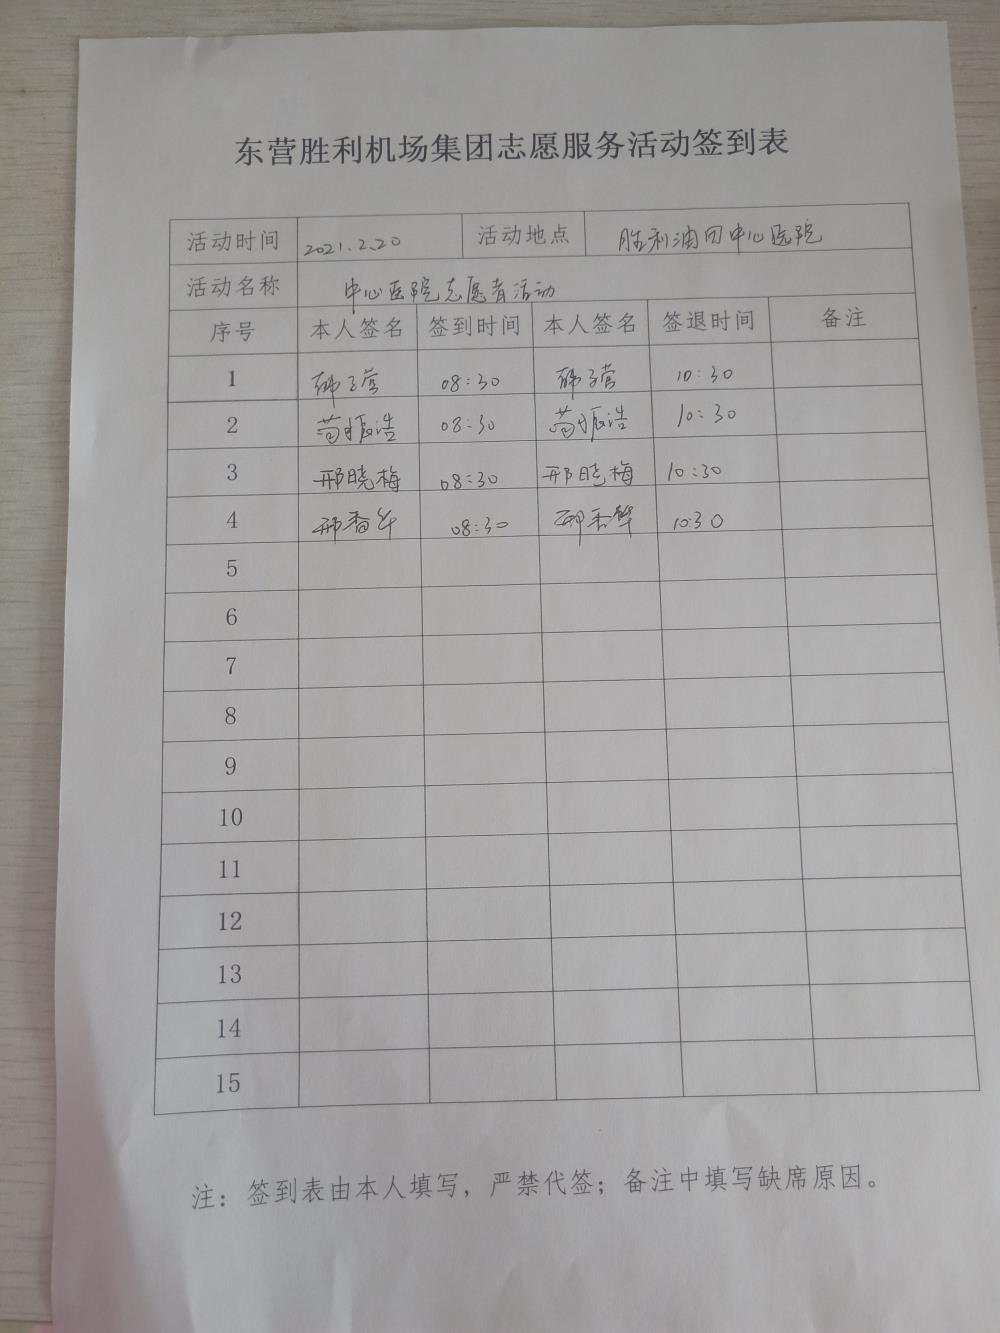 东营胜利机场集团志愿服务活动签到表
活动时间 2021.2.20 活动地点 胜利油田中心医院
活动名称 中心医院志愿者活动
序号 本人签名 签到时间 本人签名 签退时间 备注
1 韩子营 08:30 韩子营 10:30
2 苟振浩 08:30 苟振浩 10:30
3 邢晓梅 08:30 邢晓梅 10:30
4 邢香华 08:30 邢香华 10:30
5
6
7
8
9
10
11
12
13
14
15
注：签到表由本人填写，严禁代签；备注中填写缺席原因。